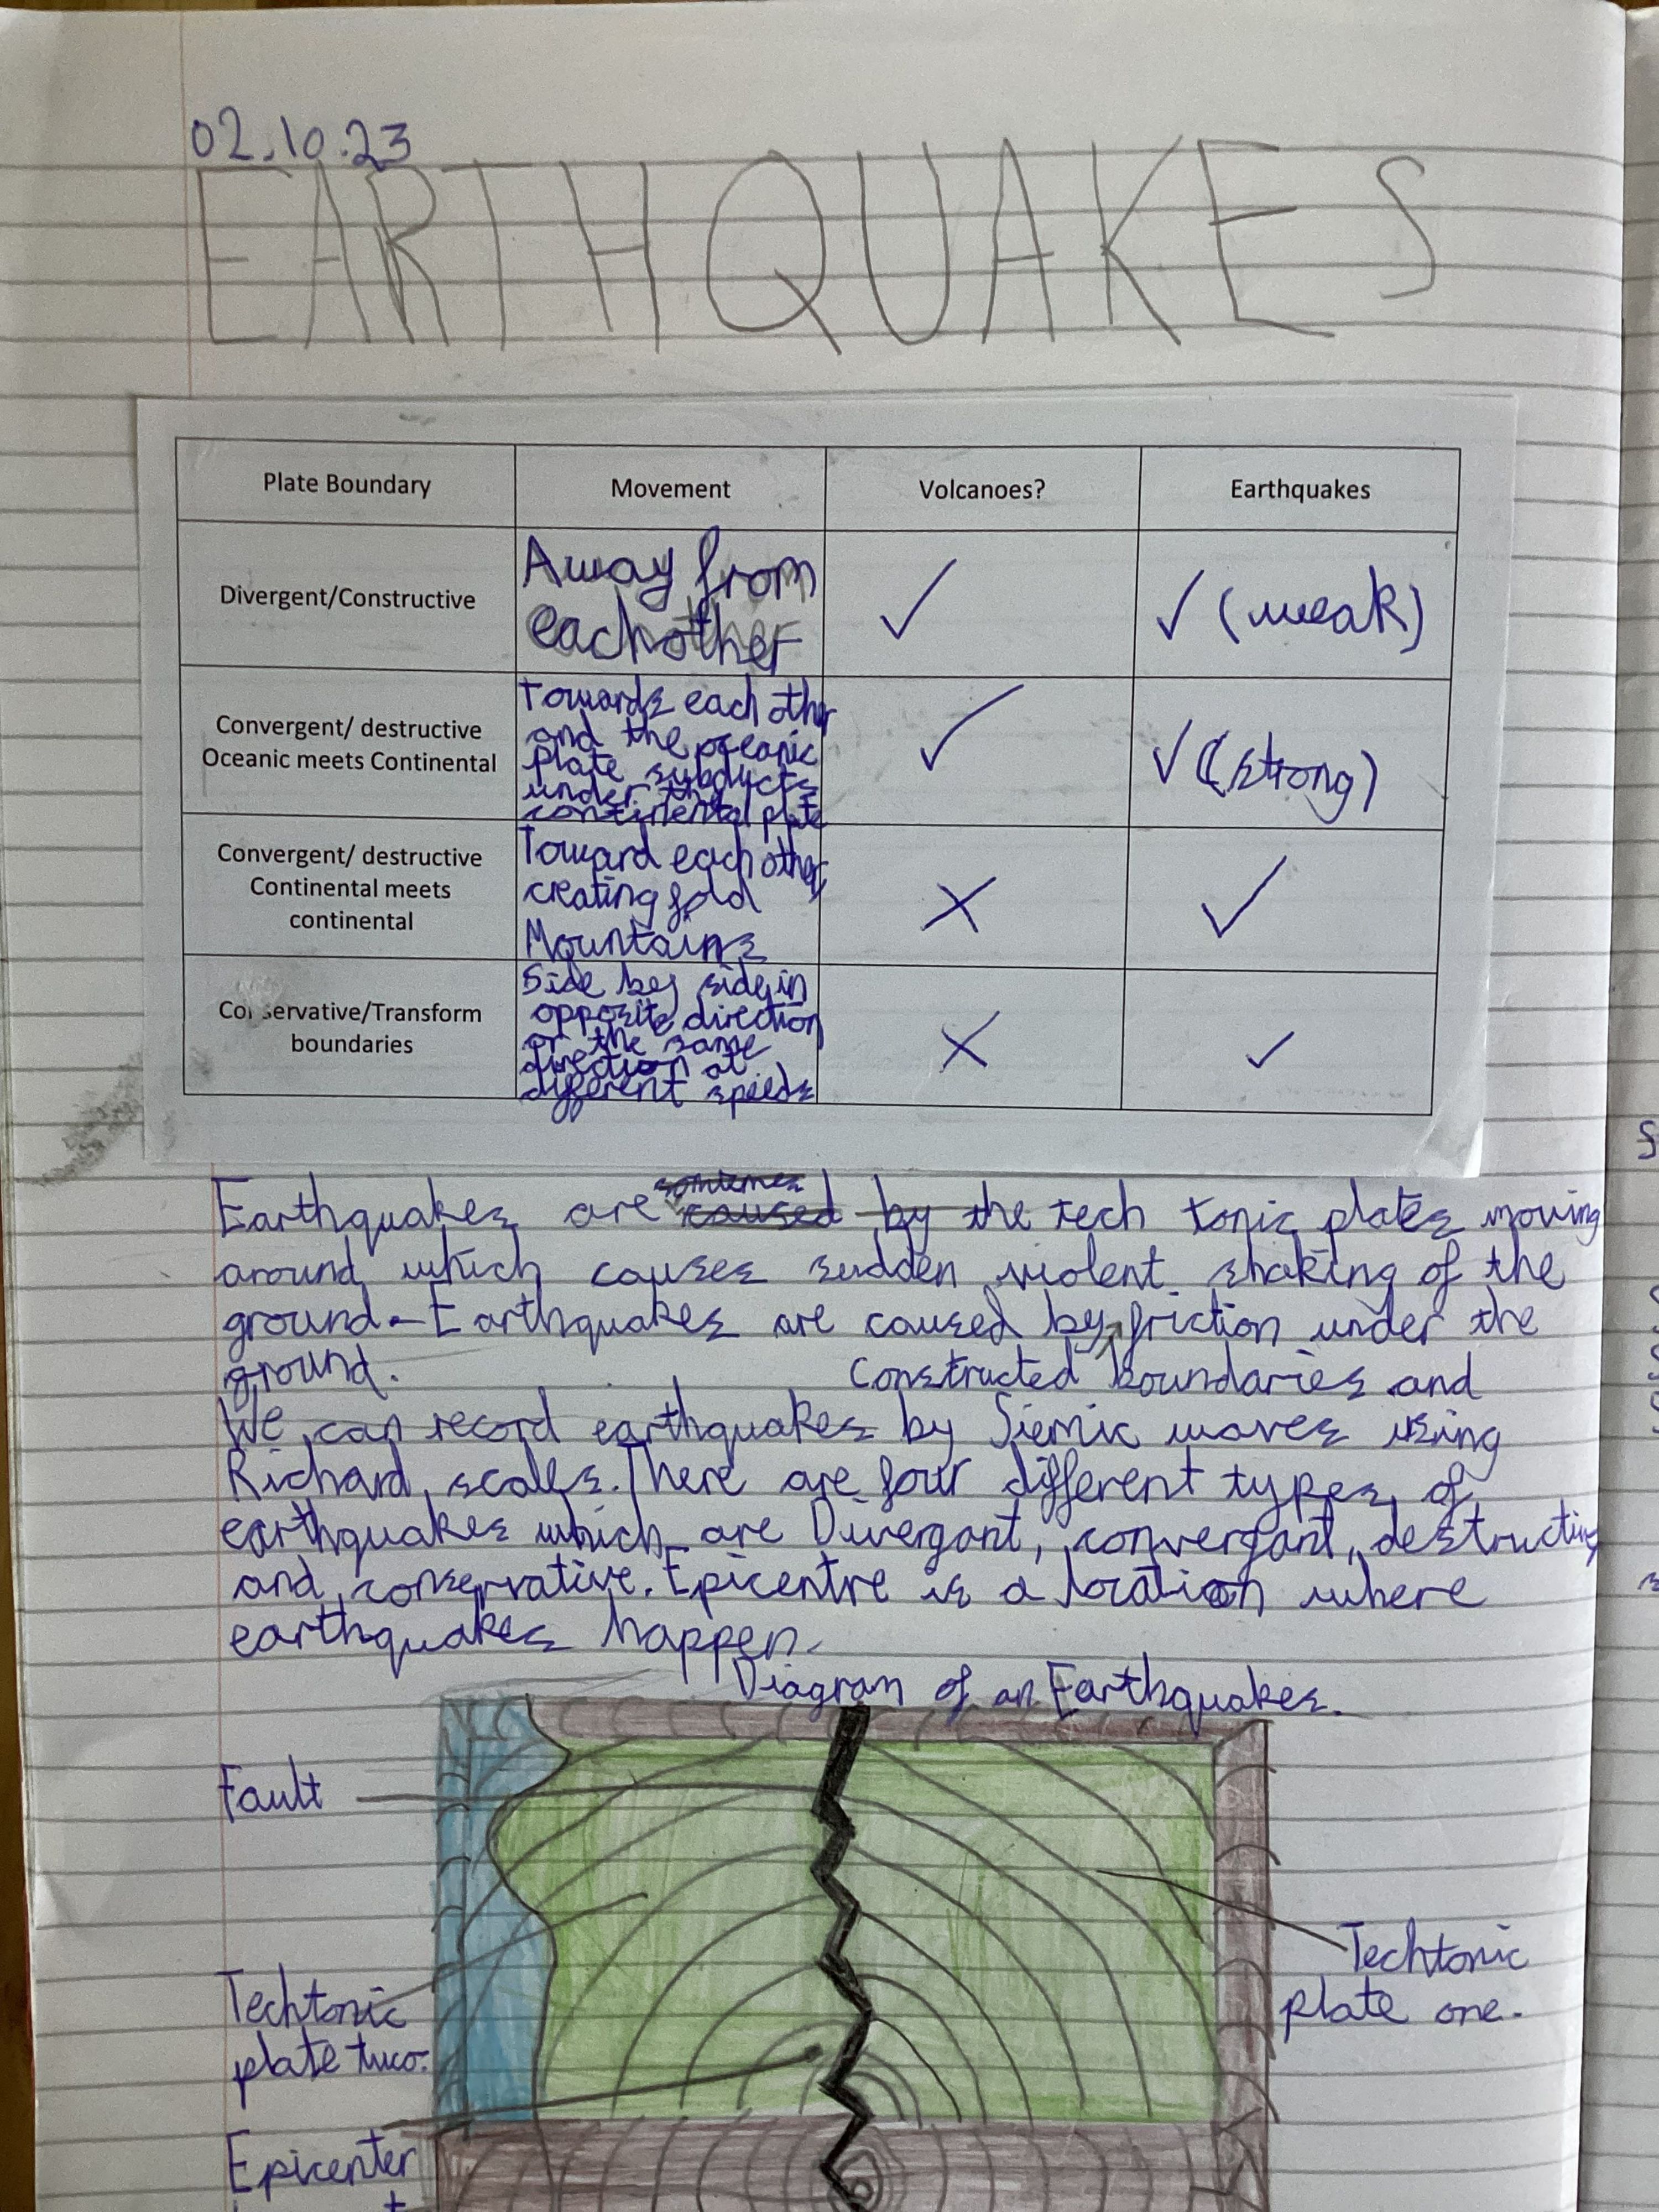 02.10.23
EARTHQUAKES
Plate Boundary
Movement
Volcanoes?
Earthquakes
Divergent/Constructive
Away from
each other
✓
✓ (weak)
Convergent/ destructive
Oceanic meets Continental
Towards each other
and the oceanic
plate subducts
under the
continental plate
✓
✓ (strong)
Convergent/ destructive
Continental meets
continental
Toward each other
creating fold
Mountains
X
✓
Conservative/Transform
boundaries
Side by side in
opposite direction
or the same
direction at
different speeds
X
✓
Earthquakes are caused by the tech tonic plates moving
around which causes sudden violent shaking of the
ground - Earthquakes are caused by friction under the
ground.
Constructed boundaries and
We can record earthquakes by Siemic waves using
Richard scales. There are four different types of
earthquakes which are Divergant, convergant, destructing
and conservative. Epicentre is a location where
earthquakes happen.
Diagram of an Earthquakes.
Fault
Techtonic
plate one.
Techtonic
plate two.
Epicenter